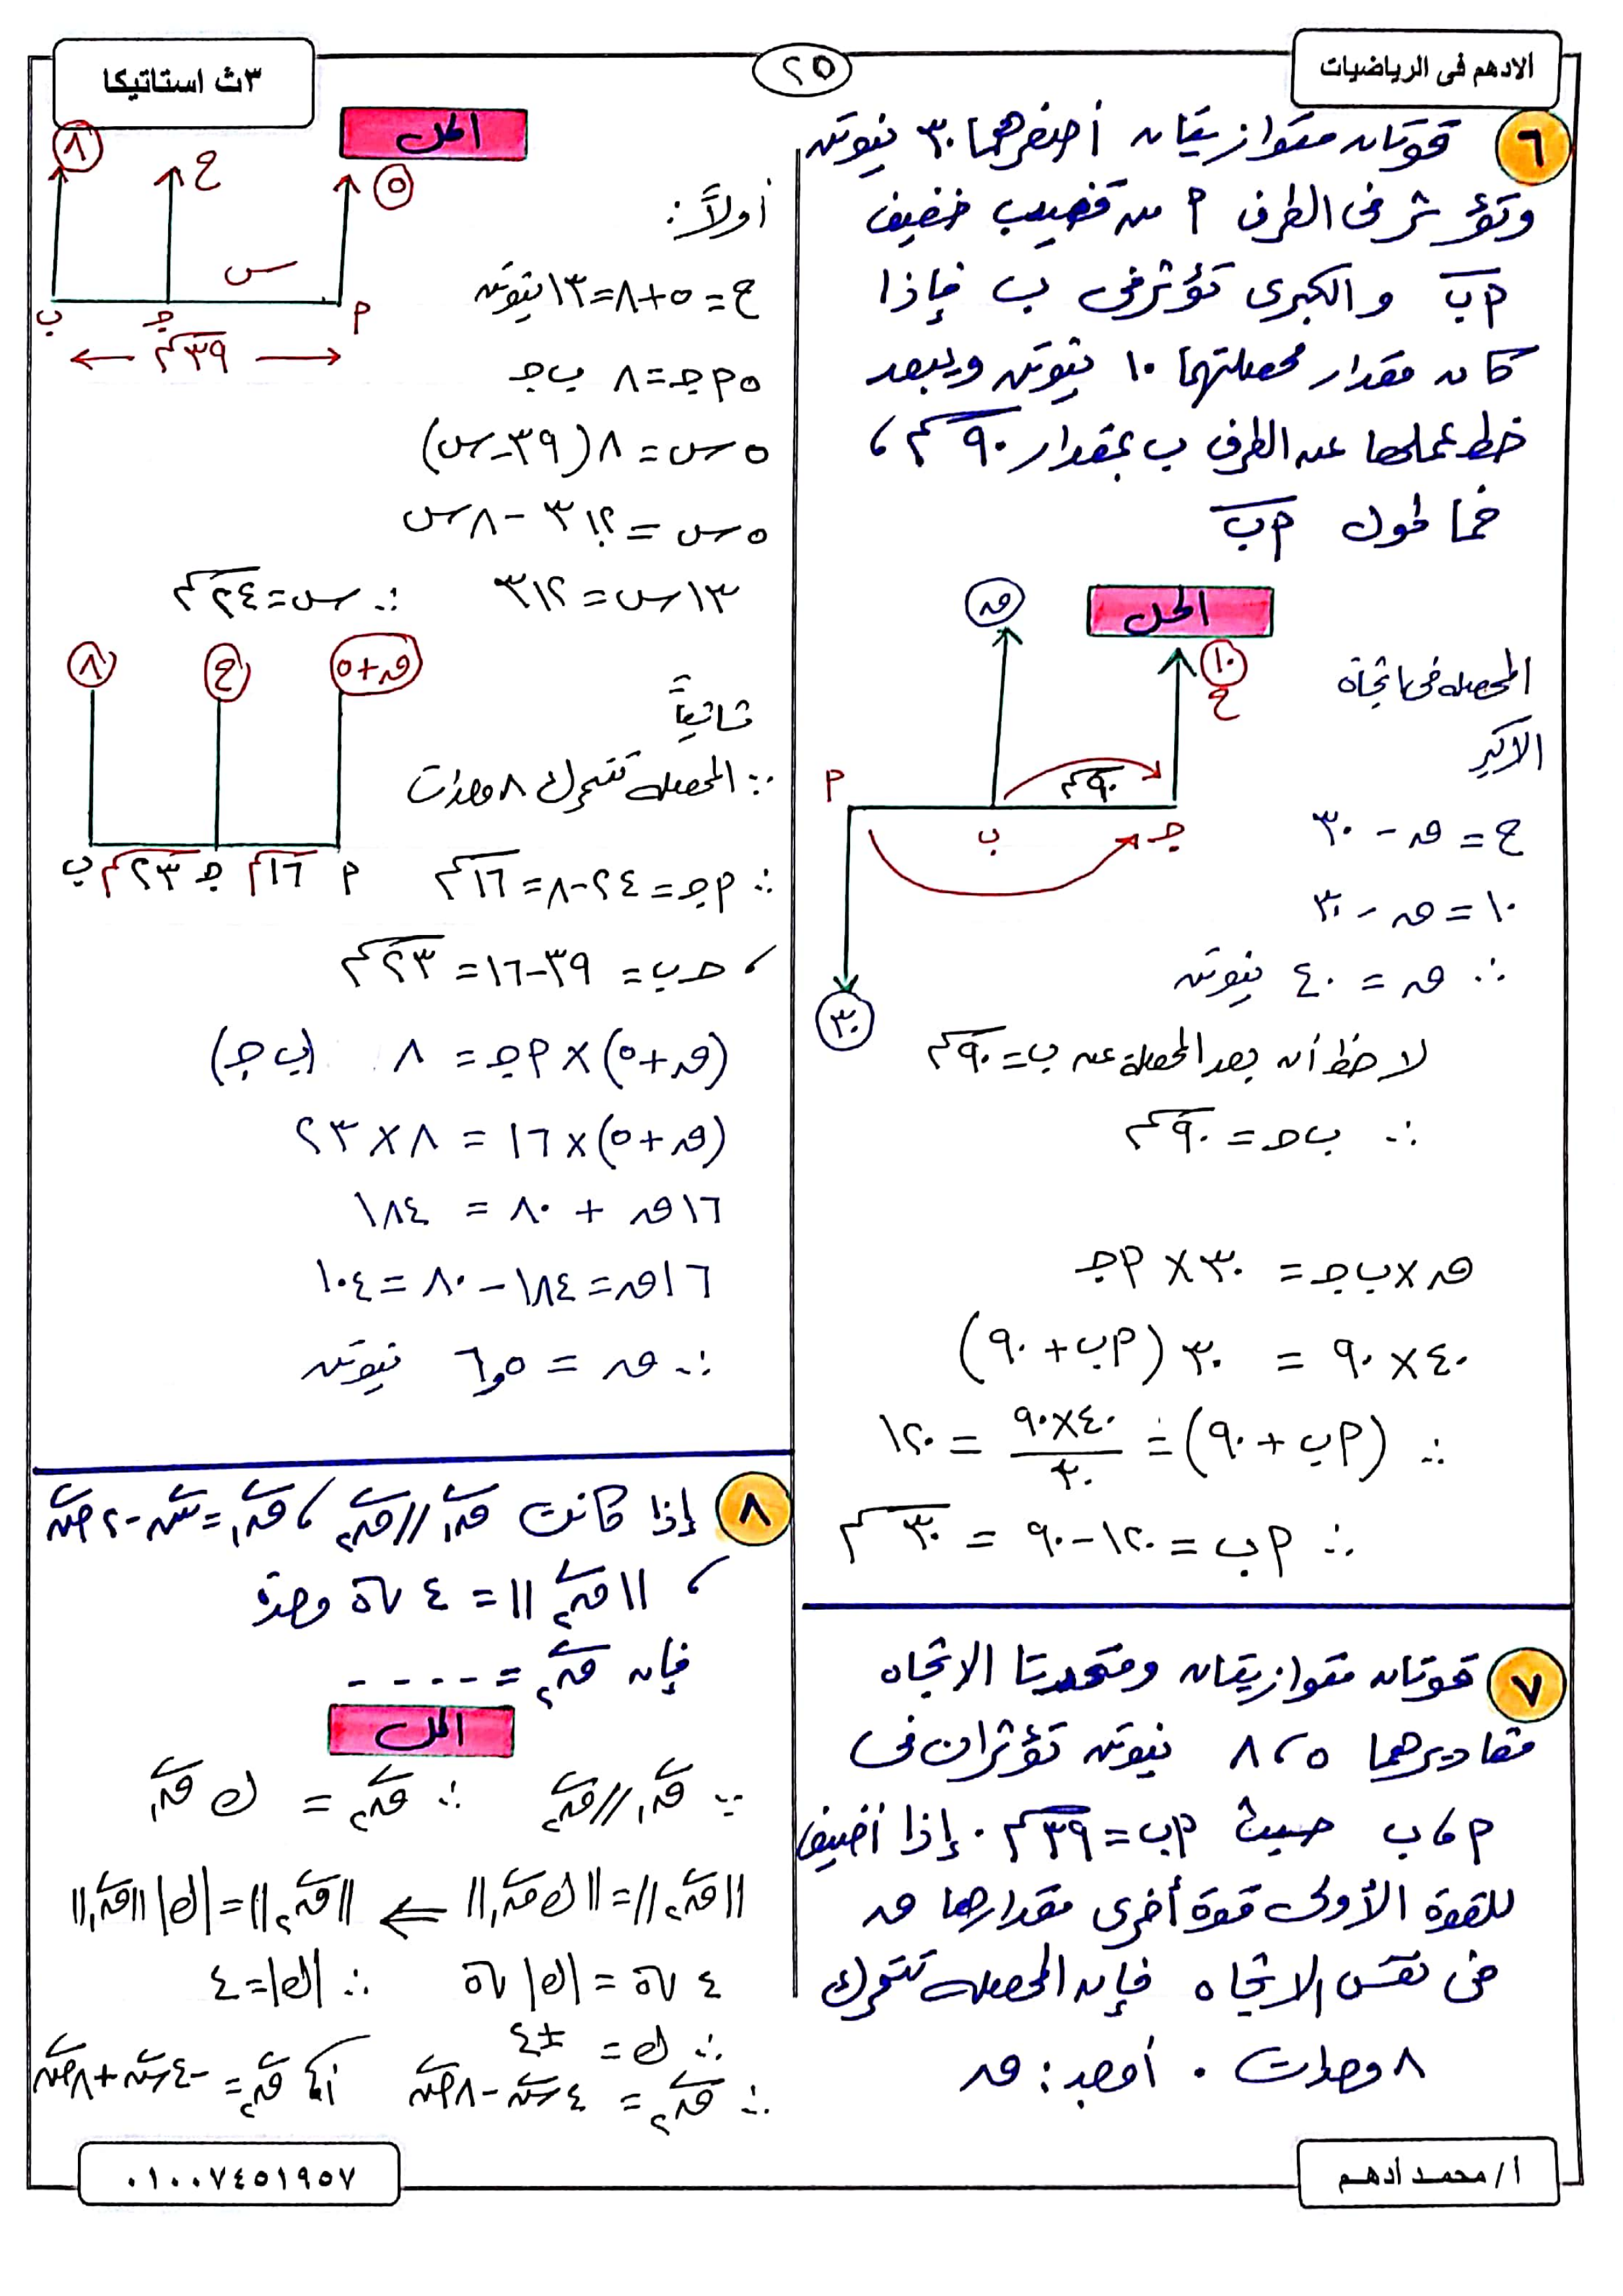 الادهم فى الرياضيات
٢٥
٣ث استاتيكا
٦ قوتان متوازيتان أصغرهما ٣٠ نيوتن
وتؤثر فى الطرف P من قضيب خفيف
Pب والكبرى تؤثر فى ب فإذا
كان مقدار محصلتهما ١٠ نيوتن ويبعد
خط عملها عن الطرف ب بمقدار ٩٠ سم ،
فما طول Pب
الحل
المحصله فى اتجاة
الاكبر
ح = ق - ٣٠
١٠ = ق - ٣٠
∴ ق = ٤٠ نيوتن
ق
١٠
ح
P
ب
جـ
٩٠ سم
٣٠
لاحظ أن بعد المحصلة عن ب = ٩٠ سم
∴ ب جـ = ٩٠ سم
ق × ب جـ = ٣٠ × P جـ
٤٠ × ٩٠ = ٣٠ (Pب + ٩٠)
∴ (Pب + ٩٠) = ٤٠×٩٠ / ٣٠ = ١٢٠
∴ Pب = ١٢٠ - ٩٠ = ٣٠ سم
٧ قوتان متوازيتان ومتحدتا الاتجاه
مقاديرهما ٥ ، ٨ نيوتن تؤثران فى
P ، ب حيث Pب = ٣٩ سم . إذا أضيف
للقوة الأولى قوة أخرى مقدارها ق
فى نفس الاتجاه فإن المحصلة تتحرك
٨ وحدات . أوجد : ق
الحل
٨
ح
٥
س
ب
جـ
P
٣٩ سم
أولاً :
ح = ٥ + ٨ = ١٣ نيوتن
٥ P جـ = ٨ ب جـ
٥ س = ٨ (٣٩ - س)
٥ س = ٣١٢ - ٨ س
١٣ س = ٣١٢ ∴ س = ٢٤ سم
٨
ح
ق + ٥
ب ٢٣ سم جـ ١٦ سم P
ثانياً
∵ المحصلة تتحرك ٨ وحدات
∴ P جـ = ٢٤ - ٨ = ١٦ سم
، جـ ب = ٣٩ - ١٦ = ٢٣ سم
(ق + ٥) × P جـ = ٨ (ب جـ)
(ق + ٥) × ١٦ = ٨ × ٢٣
١٦ ق + ٨٠ = ١٨٤
١٦ ق = ١٨٤ - ٨٠ = ١٠٤
∴ ق = ٦,٥ نيوتن
٨ إذا كانت ق١ // ق٢ ، ق١ = س - ٢ ص
، || ق٢ || = ٤ √٥ وحدة
فإن ق٢ = - - - -
الحل
∵ ق١ // ق٢ ∴ ق٢ = ك ق١
|| ق٢ || = || ك ق١ || ⇐ || ق٢ || = |ك| || ق١ ||
٤ √٥ = |ك| √٥ ∴ |ك| = ٤
∴ ك = ± ٤
∴ ق٢ = ٤ س - ٨ ص أ، ق٢ = -٤ س + ٨ ص
أ / محمد أدهم
٠١٠٠٧٤٥١٩٥٧